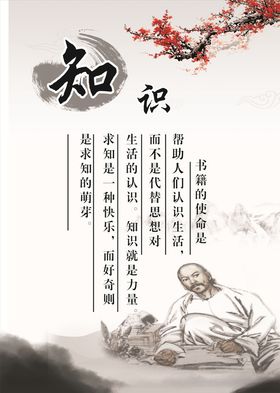 知识
书籍的使命是
帮助人们认识生活，
而不是代替思想对
生活的认识。知识就是力量。
求知是一种快乐，而好奇则
是求知的萌芽。